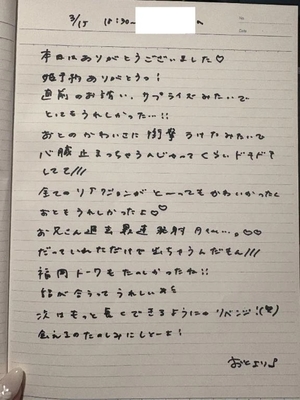 3/15 18:30~
No.
Date
本日はありがとうございました♡
姫予約ありがとうっ!
直前のお誘い、サプライズみたいで
とてもうれしかった…!!
おとのかわいさに衝撃うけたみたいで
心臓止まっちゃうんじゃってくらいドキドキ
してて///
全てのリアクションがとーってもかわいかったし
おともうれしかったよ♡
お兄さん過去最速発射
だっていれただけで出ちゃうんだもん///
福岡トークもたのしかったね!!
話が合うってうれしい
次はもっと長くできるようにのリベンジ!(♡)
会えるのたのしみにしとーよ!
おとより♪